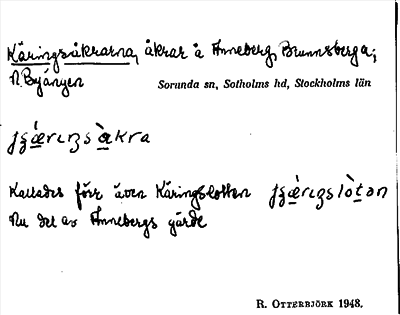 Käringsåkrarna, åkrar å Anneberg, Brunnsberga,
N. Byängen
Sorunda sn, Sotholms hd, Stockholms län
Kallades förr även Käringslotten
Nu del av Annebergs gärde
R. OTTERBJÖRK 1948.